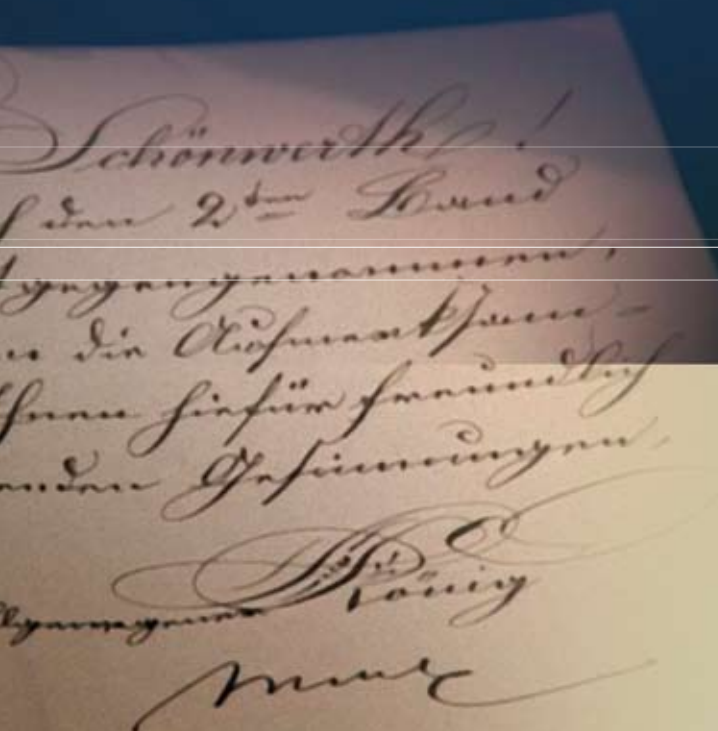 Schönwerth!
den 2ten Band
gegengenommen,
die Aufmerksam-
Ihnen hiefür freundlich
enden Gesinnungen,
König
Max